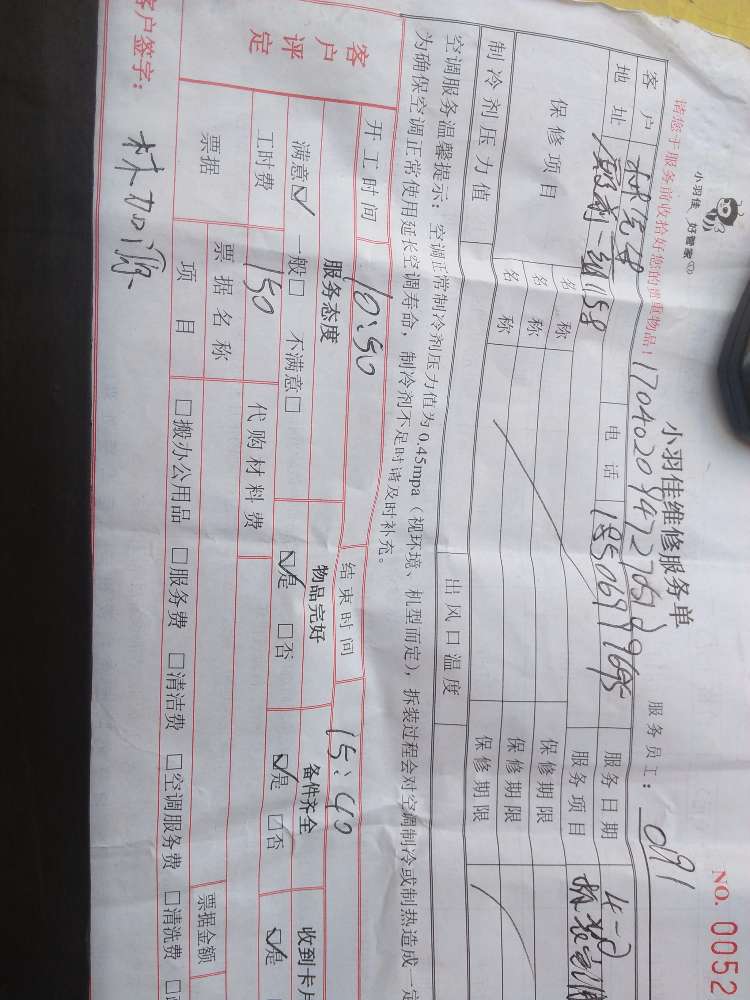 小羽佳、好管家
请您于服务前收拾好您的贵重物品!
小羽佳维修服务单
NO. 0052
服务员工: 091
客户
地址
电话
服务日期
服务项目
保修项目
名称
保修期限
名称
保修期限
名称
保修期限
制冷剂压力值
出风口温度
空调服务温馨提示:空调正常制冷剂压力值为0.45mpa(视环境、机型而定),拆装过程会对空调制冷或制热造成一定
为确保空调正常使用延长空调寿命,制冷剂不足时请及时补充。
开工时间 10:50 结束时间 15:40
客户评定
服务态度 物品完好 备件齐全 收到卡片
满意☑ 一般□ 不满意□ ☑是 □否 ☑是 □否 ☑是
工时费 150 代购材料费
票据 票据名称 票据金额
项目 □搬办公用品 □服务费 □清洁费 □空调服务费 □清洗费
客户签字: 林加源